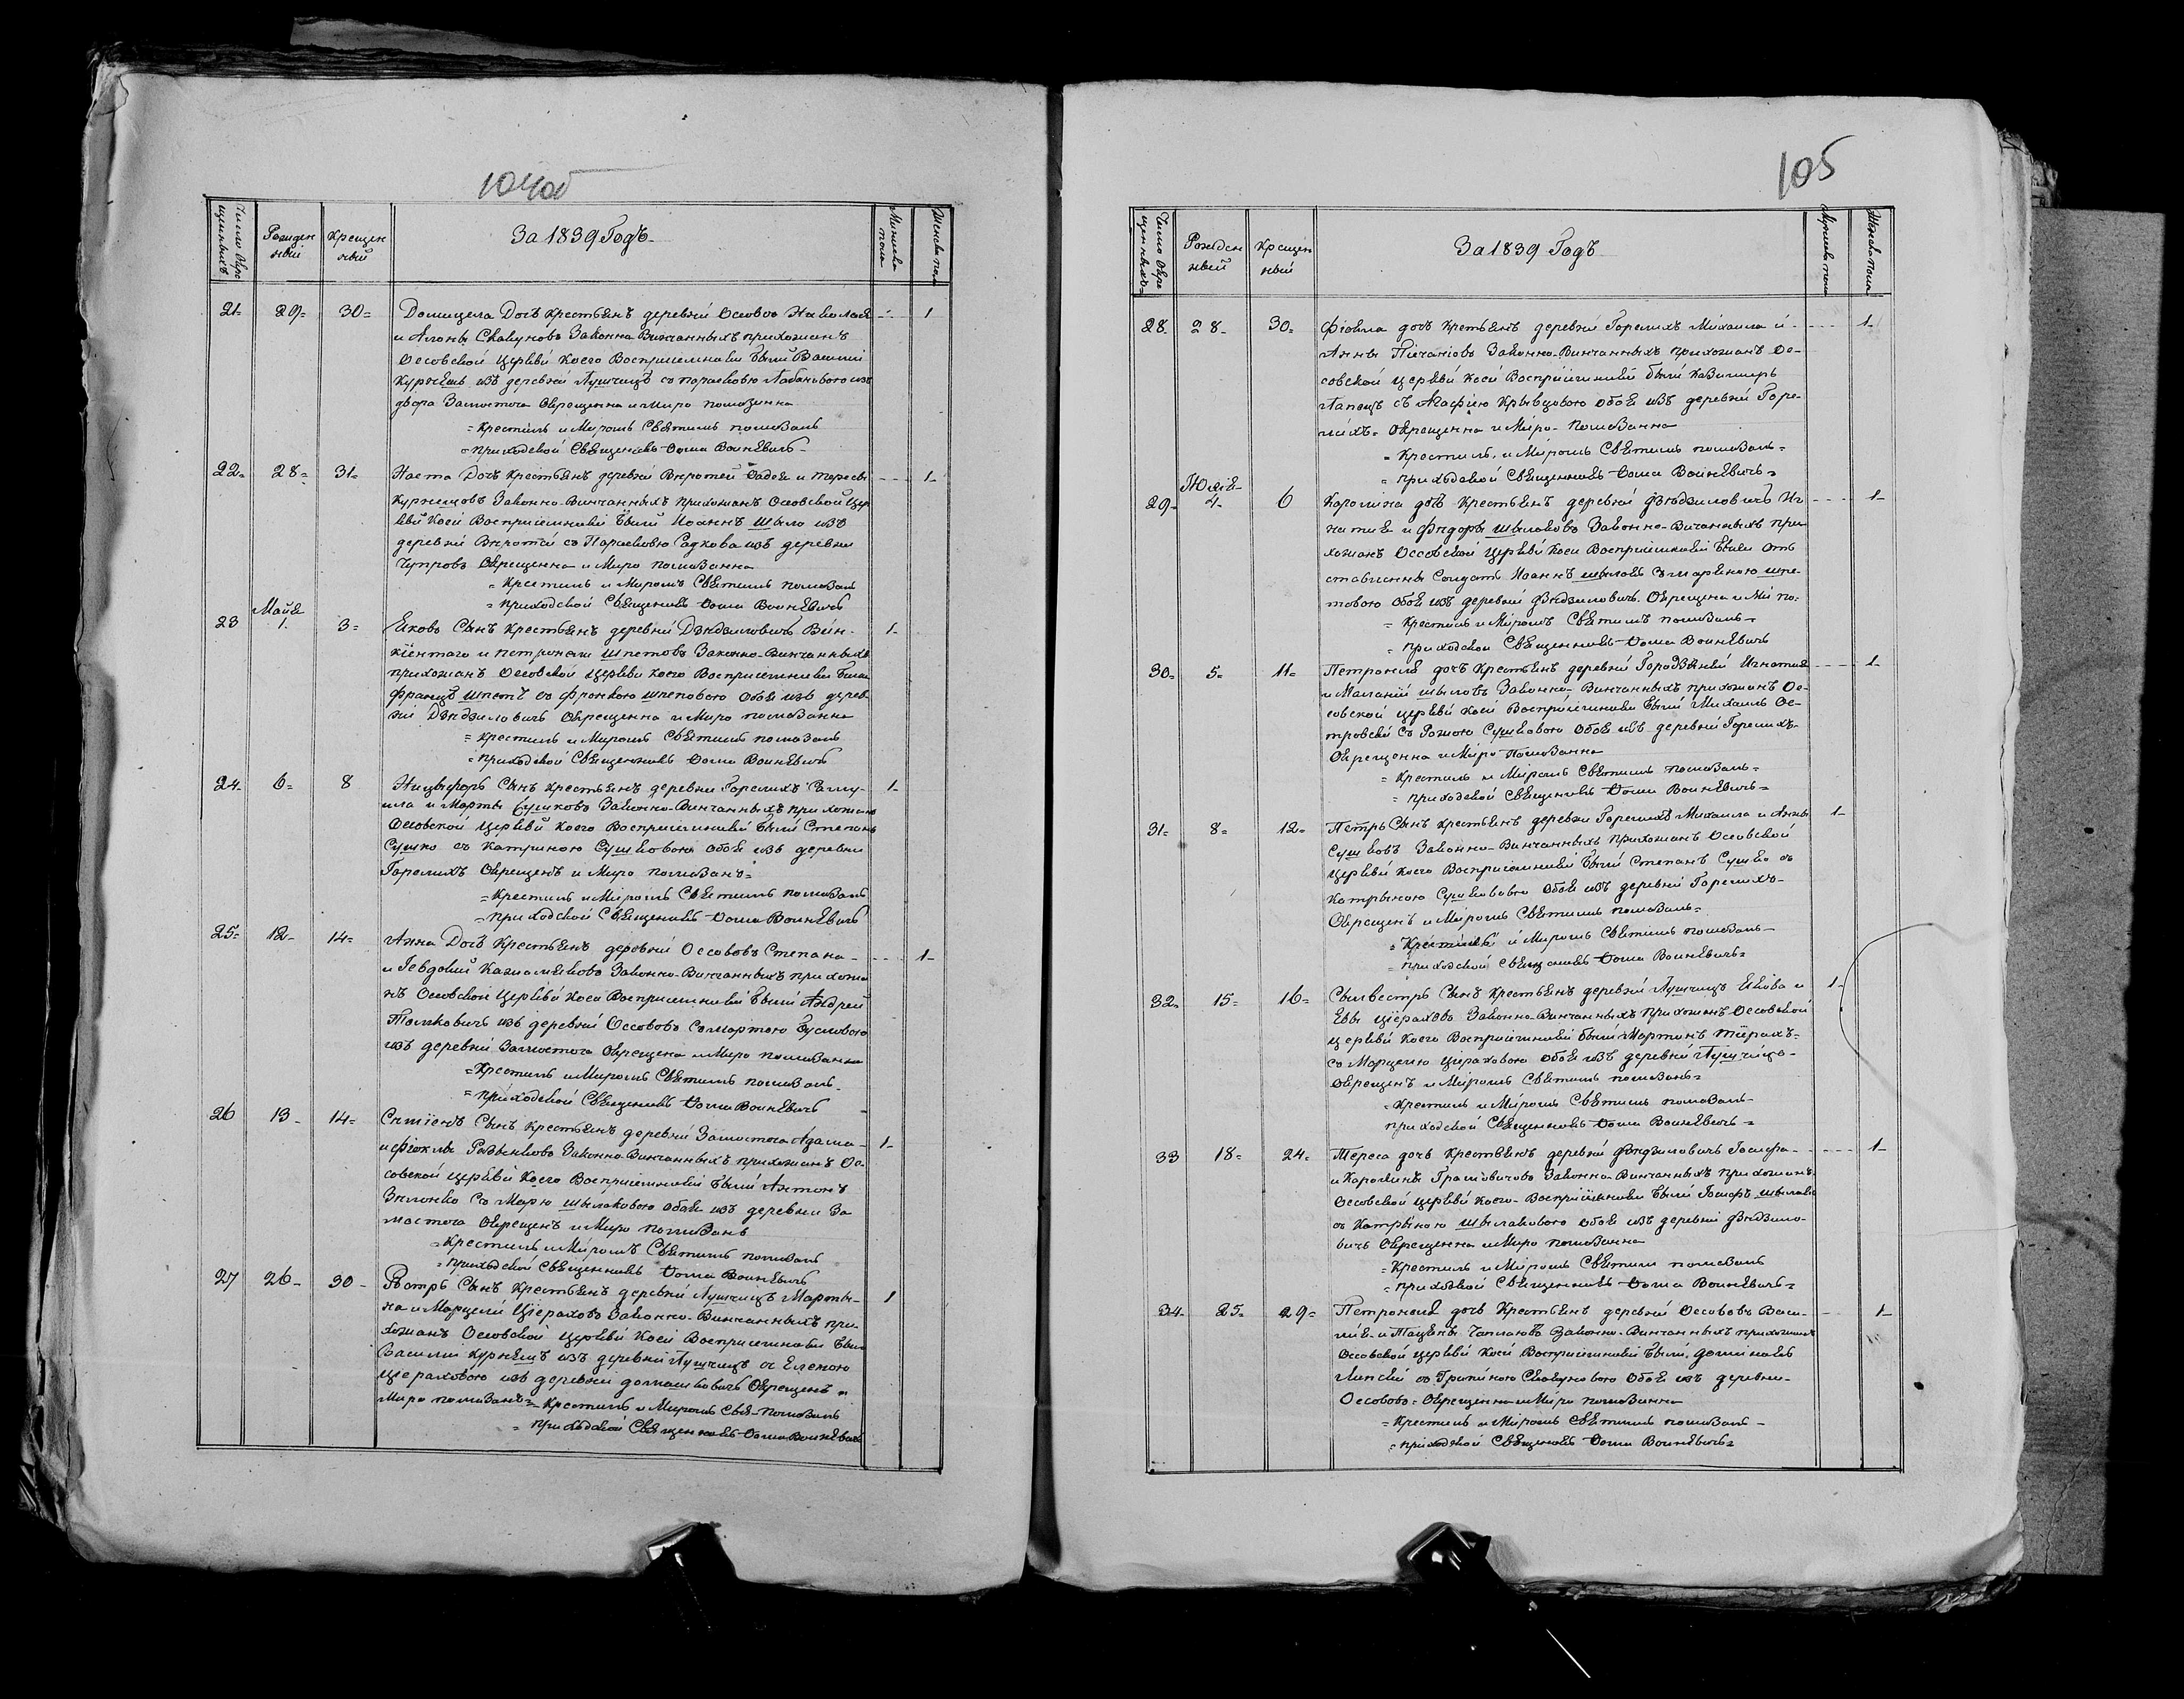 104об
Число Окре
щенныхъ
Рожден
ный
Крещен
ный
За 1839 Годъ
Мужеска
пола
Женска пола
21 29 30 Домицела Дочъ Крестьянъ деревни Оссовов Николая 1
и Алоны Скакуновъ Законно Винчанныхъ прихожанъ
Оссовской Церкви Коего Восприемники Были Василий
Курнешъ изъ деревни Лущицъ со Парасковью изъ
двора Замосточа Окрещенна и Миро помазанна
Крестилъ и Миромъ Святымъ помазалъ
приходской Священникъ Фома Воинъвичъ
22 28 31 Наста Дочъ Крестьянъ деревни Фадея и Тересы 1
Курнешовъ Законно Винчанныхъ прихожанъ Оссовской Цер
кви Коей Восприемники Были Иоаннъ Шыло изъ
деревни со Парасковью изъ деревни
Чупровъ Окрещенна и Миро помазанна
Крестилъ и Миромъ Святымъ помазалъ
приходской Священникъ Фома Воинъвичъ
Майя
23 1 3 Яковъ Сынъ Крестьянъ деревни Вин- 1
и Петронели Шпетовъ Законно-Винчанныхъ
прихожанъ Оссовской Церкви Коего Восприемники Были
Францъ Шпетъ со Шпетовою обоя изъ дерев-
Окрещенна и Миро помазанна
Крестилъ и Миромъ Святымъ помазалъ
приходской Священникъ Фома Воинъвичъ
24 6 8 Ницыфоръ Сынъ Крестьянъ деревни Горелихъ Саму- 1
ила и Марты Сушковъ Законно-Винчанныхъ прихожанъ
Оссовской Церкви Коего Восприемники Были Степанъ
Сушко съ Катриною Сушковою обоя изъ деревни
Горелихъ Окрещенъ и Миро помазанъ
Крестилъ и Миромъ Святымъ помазалъ
приходской Священникъ Фома Воинъвичъ
25 12 14 Анна Дочъ Крестьянъ деревни Оссововъ Степана 1
и Гевдокии Законно-Винчанныхъ прихожа
нъ Оссовской Церкви Коей Восприемники Были Андрей
изъ деревни Оссовово со Мартою Гусловою
изъ деревни Замосточа Окрещена и Миро помазанна
Крестилъ и Миромъ Святымъ помазалъ
приходской Священникъ Фома Воинъвичъ
26 13 14 Сынъ Крестьянъ деревни Замосточа Адама 1
и Фіоклы Законно-Винчанныхъ прихожанъ Ос-
совской Церкви Коего Восприемники Были Антонъ
со Марю Шылаковою обоя изъ деревни За
мосточа Окрещенъ и Миро помазанъ
Крестилъ и Миромъ Святымъ помазалъ
приходской Священникъ Фома Воинъвичъ
27 26 30 Петръ Сынъ Крестьянъ деревни Лущицъ Марты- 1
на и Марцели Цiераховъ Законно-Винчанныхъ при-
хожанъ Оссовской Церкви Коей Восприемники Были
Василий Курнешъ изъ деревни Лущицъ съ Еленою
Цiераховою изъ деревни Домашковичъ Окрещенъ и
Миро помазанъ Крестилъ и Миромъ Свя- помазалъ
приходской Священникъ Фома Воинъвичъ
105
Число Окре
щенныхъ
Рожден
ный
Крещен
ный
За 1839 Годъ
Мужеска пола
Женска пола
28 28 30 Фiовила дочъ Кретьянъ деревни Горелихъ Михаила и 1
Анны Законно-Винчанныхъ прихожанъ Ос-
совской Церкви Коей Восприемники были Казимиръ
Лапецъ съ Агафiю Крывцовою обоя изъ деревни Горе-
лихъ Окрещенна и Миро Помазанна
Крестилъ и Миромъ Святымъ помазалъ
приходской Священникъ Фома Воинъвичъ
Июня
29 4 6 Каролина дочъ Крестьянъ деревни Фъдзиловичъ Иг 1
натия и Федоры Шылаковъ Законно-Винчанныхъ при
хожанъ Оссовской Церкви Коей Восприемники Были От
ставнны Солдатъ Иоаннъ Шылакъ съ Марьяною Шпе-
товою обоя изъ деревни Фъдзиловичъ Окрещена и Ми по
Крестилъ и Миромъ Святымъ помазалъ
приходской Священникъ Фома Воинъвичъ
30 5 11 Петронеля дочъ Крестьянъ деревни Игнатия 1
и Малании Шыловъ Законно-Винчанныхъ прихожанъ Ос-
совской Церкви Коей Восприемники Были Михаилъ Ос-
тровский съ Розою Сушковою обоя изъ деревни Горелихъ
Окрещенна и Миро Помазанна
Крестилъ и Миромъ Святымъ помазалъ
приходской Священникъ Фома Воинъвичъ
31 8 12 Петръ Сынъ Крестьянъ деревни Горелихъ Михаила и Анны 1
Сушковъ Законно-Винчанныхъ прихожанъ Оссовской
Церкви Коего Восприемники Были Степанъ Сушко съ
Катрыною Сушковою обоя изъ деревни Горелихъ
Окрещенъ и Миромъ Святымъ помазалъ
Крестилъ и Миромъ Святымъ помазалъ
приходской Священникъ Фома Воинъвичъ
32 15 16 Сылвестръ Сынъ Крестьянъ деревни Лущицъ Якова и 1
Евы Цiераховъ Законно-Винчанныхъ прихожанъ Оссовской
Церкви Коего Восприемники были Мартинъ Тiерахъ
со Марцелю Цiераховою обоя изъ деревни Лущицъ
Окрещенъ и Миромъ Святымъ помазанъ
Крестилъ и Миромъ Святымъ помазалъ
приходской Священникъ Фома Воинъвичъ
33 18 24 Тереса дочъ Крестьянъ деревни Фъдзиловичъ Iосифа 1
и Каролины Законно-Винчанныхъ прихожанъ
Оссовской Церкви Коего Восприемники Были Iосифъ Шылакъ
съ Катрыною Шылаковою обоя изъ деревни Фъдзило-
вичъ Окрещенна и Миро помазанна
Крестилъ и Миромъ Святымъ помазалъ
приходской Священникъ Фома Воинъвичъ
34 25 29 Петронеля дочъ Крестьянъ деревни Оссововъ Васи- 1
лия и Тацяны Законно-Винчанныхъ прихожанъ
Оссовской Церкви Коей Восприемники Были Доминикъ
Липский со Грипиною Скакуновою обоя изъ деревни
Оссовово Окрещенна и Миро помазанна
Крестилъ и Миромъ Святымъ помазалъ
приходской Священникъ Фома Воинъвичъ